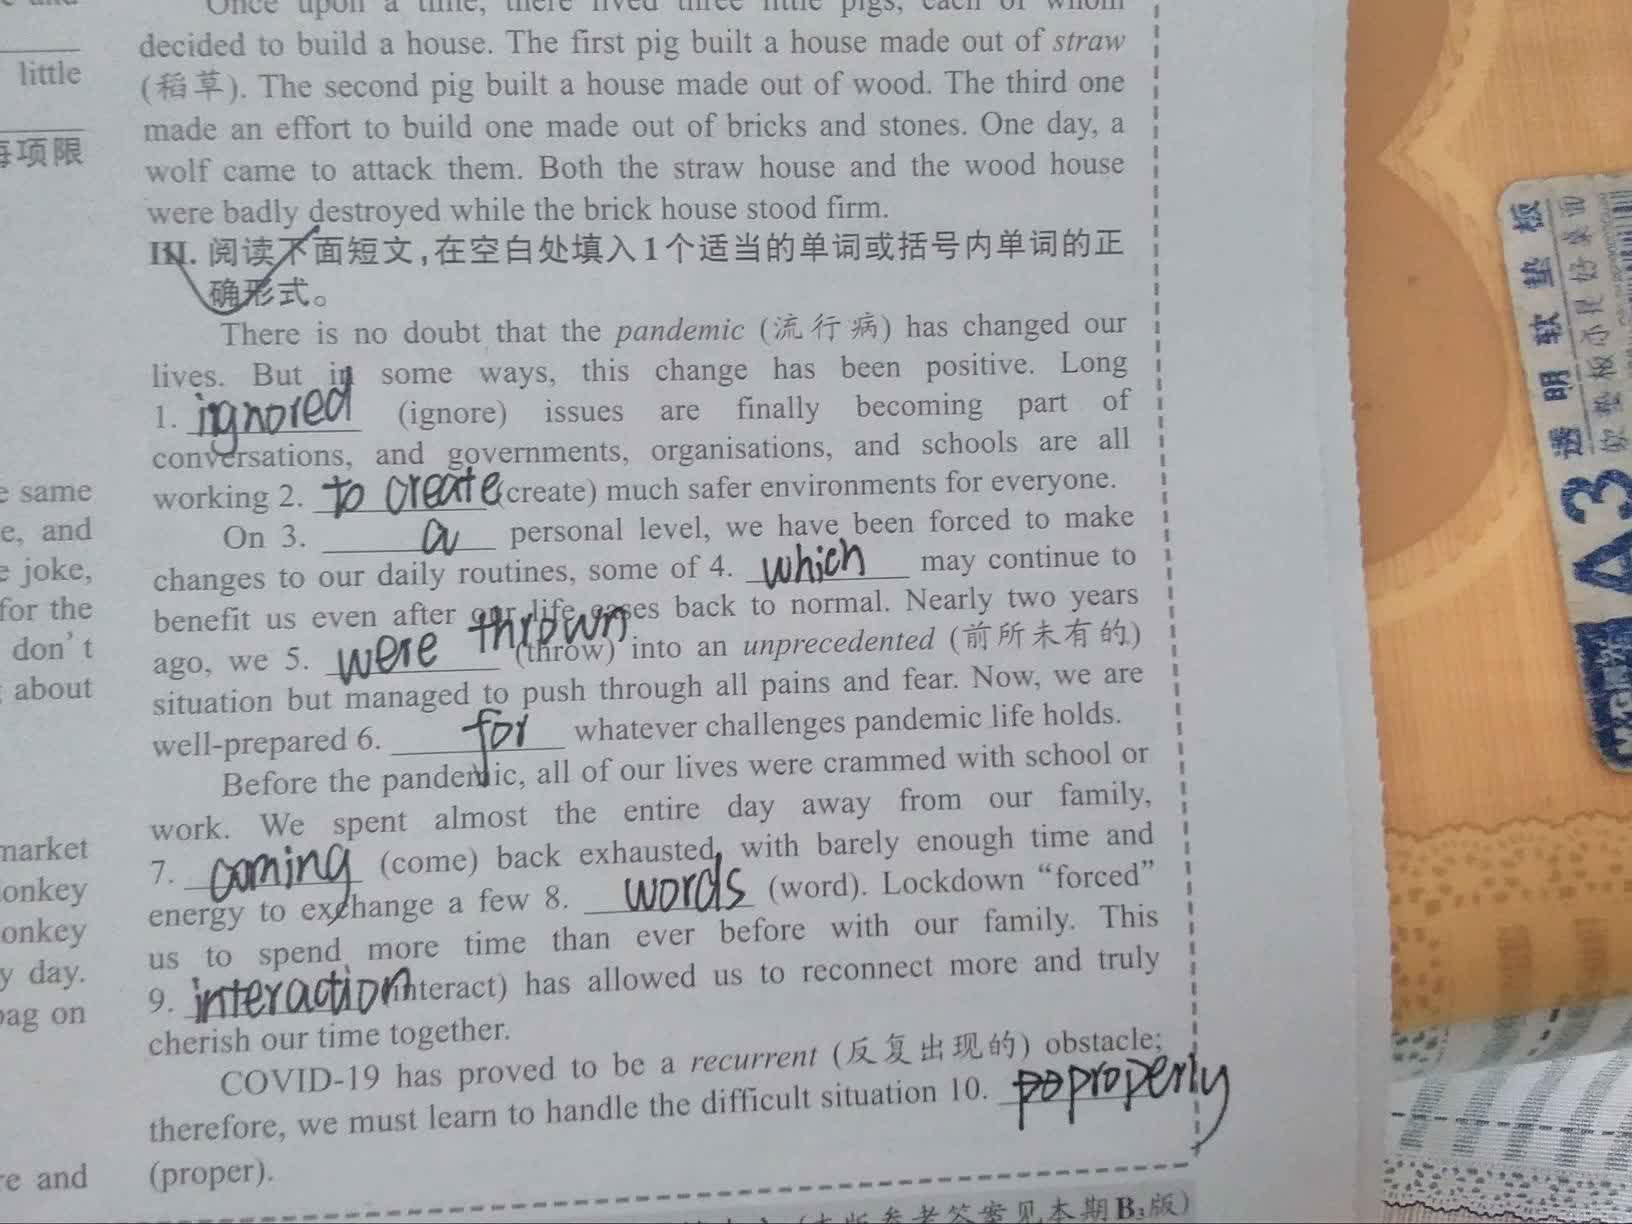 Once upon a time, there lived three little pigs, each of whom
decided to build a house. The first pig built a house made out of straw
(稻草). The second pig built a house made out of wood. The third one
made an effort to build one made out of bricks and stones. One day, a
wolf came to attack them. Both the straw house and the wood house
were badly destroyed while the brick house stood firm.
III. 阅读下面短文,在空白处填入1个适当的单词或括号内单词的正
确形式。
There is no doubt that the pandemic (流行病) has changed our
lives. But in some ways, this change has been positive. Long
1. ignored (ignore) issues are finally becoming part of
conversations, and governments, organisations, and schools are all
working 2. to create (create) much safer environments for everyone.
On 3. a personal level, we have been forced to make
changes to our daily routines, some of 4. which may continue to
benefit us even after our life eases back to normal. Nearly two years
ago, we 5. were thrown (throw) into an unprecedented (前所未有的)
situation but managed to push through all pains and fear. Now, we are
well-prepared 6. for whatever challenges pandemic life holds.
Before the pandemic, all of our lives were crammed with school or
work. We spent almost the entire day away from our family,
7. coming (come) back exhausted, with barely enough time and
energy to exchange a few 8. words (word). Lockdown “forced”
us to spend more time than ever before with our family. This
9. interaction (interact) has allowed us to reconnect more and truly
cherish our time together.
COVID-19 has proved to be a recurrent (反复出现的) obstacle;
therefore, we must learn to handle the difficult situation 10. properly
(proper).
答案见本期B3版)
little
每项限
same
e, and
joke,
for the
don't
about
market
onkey
onkey
y day.
bag on
re and
透明软垫板
A3